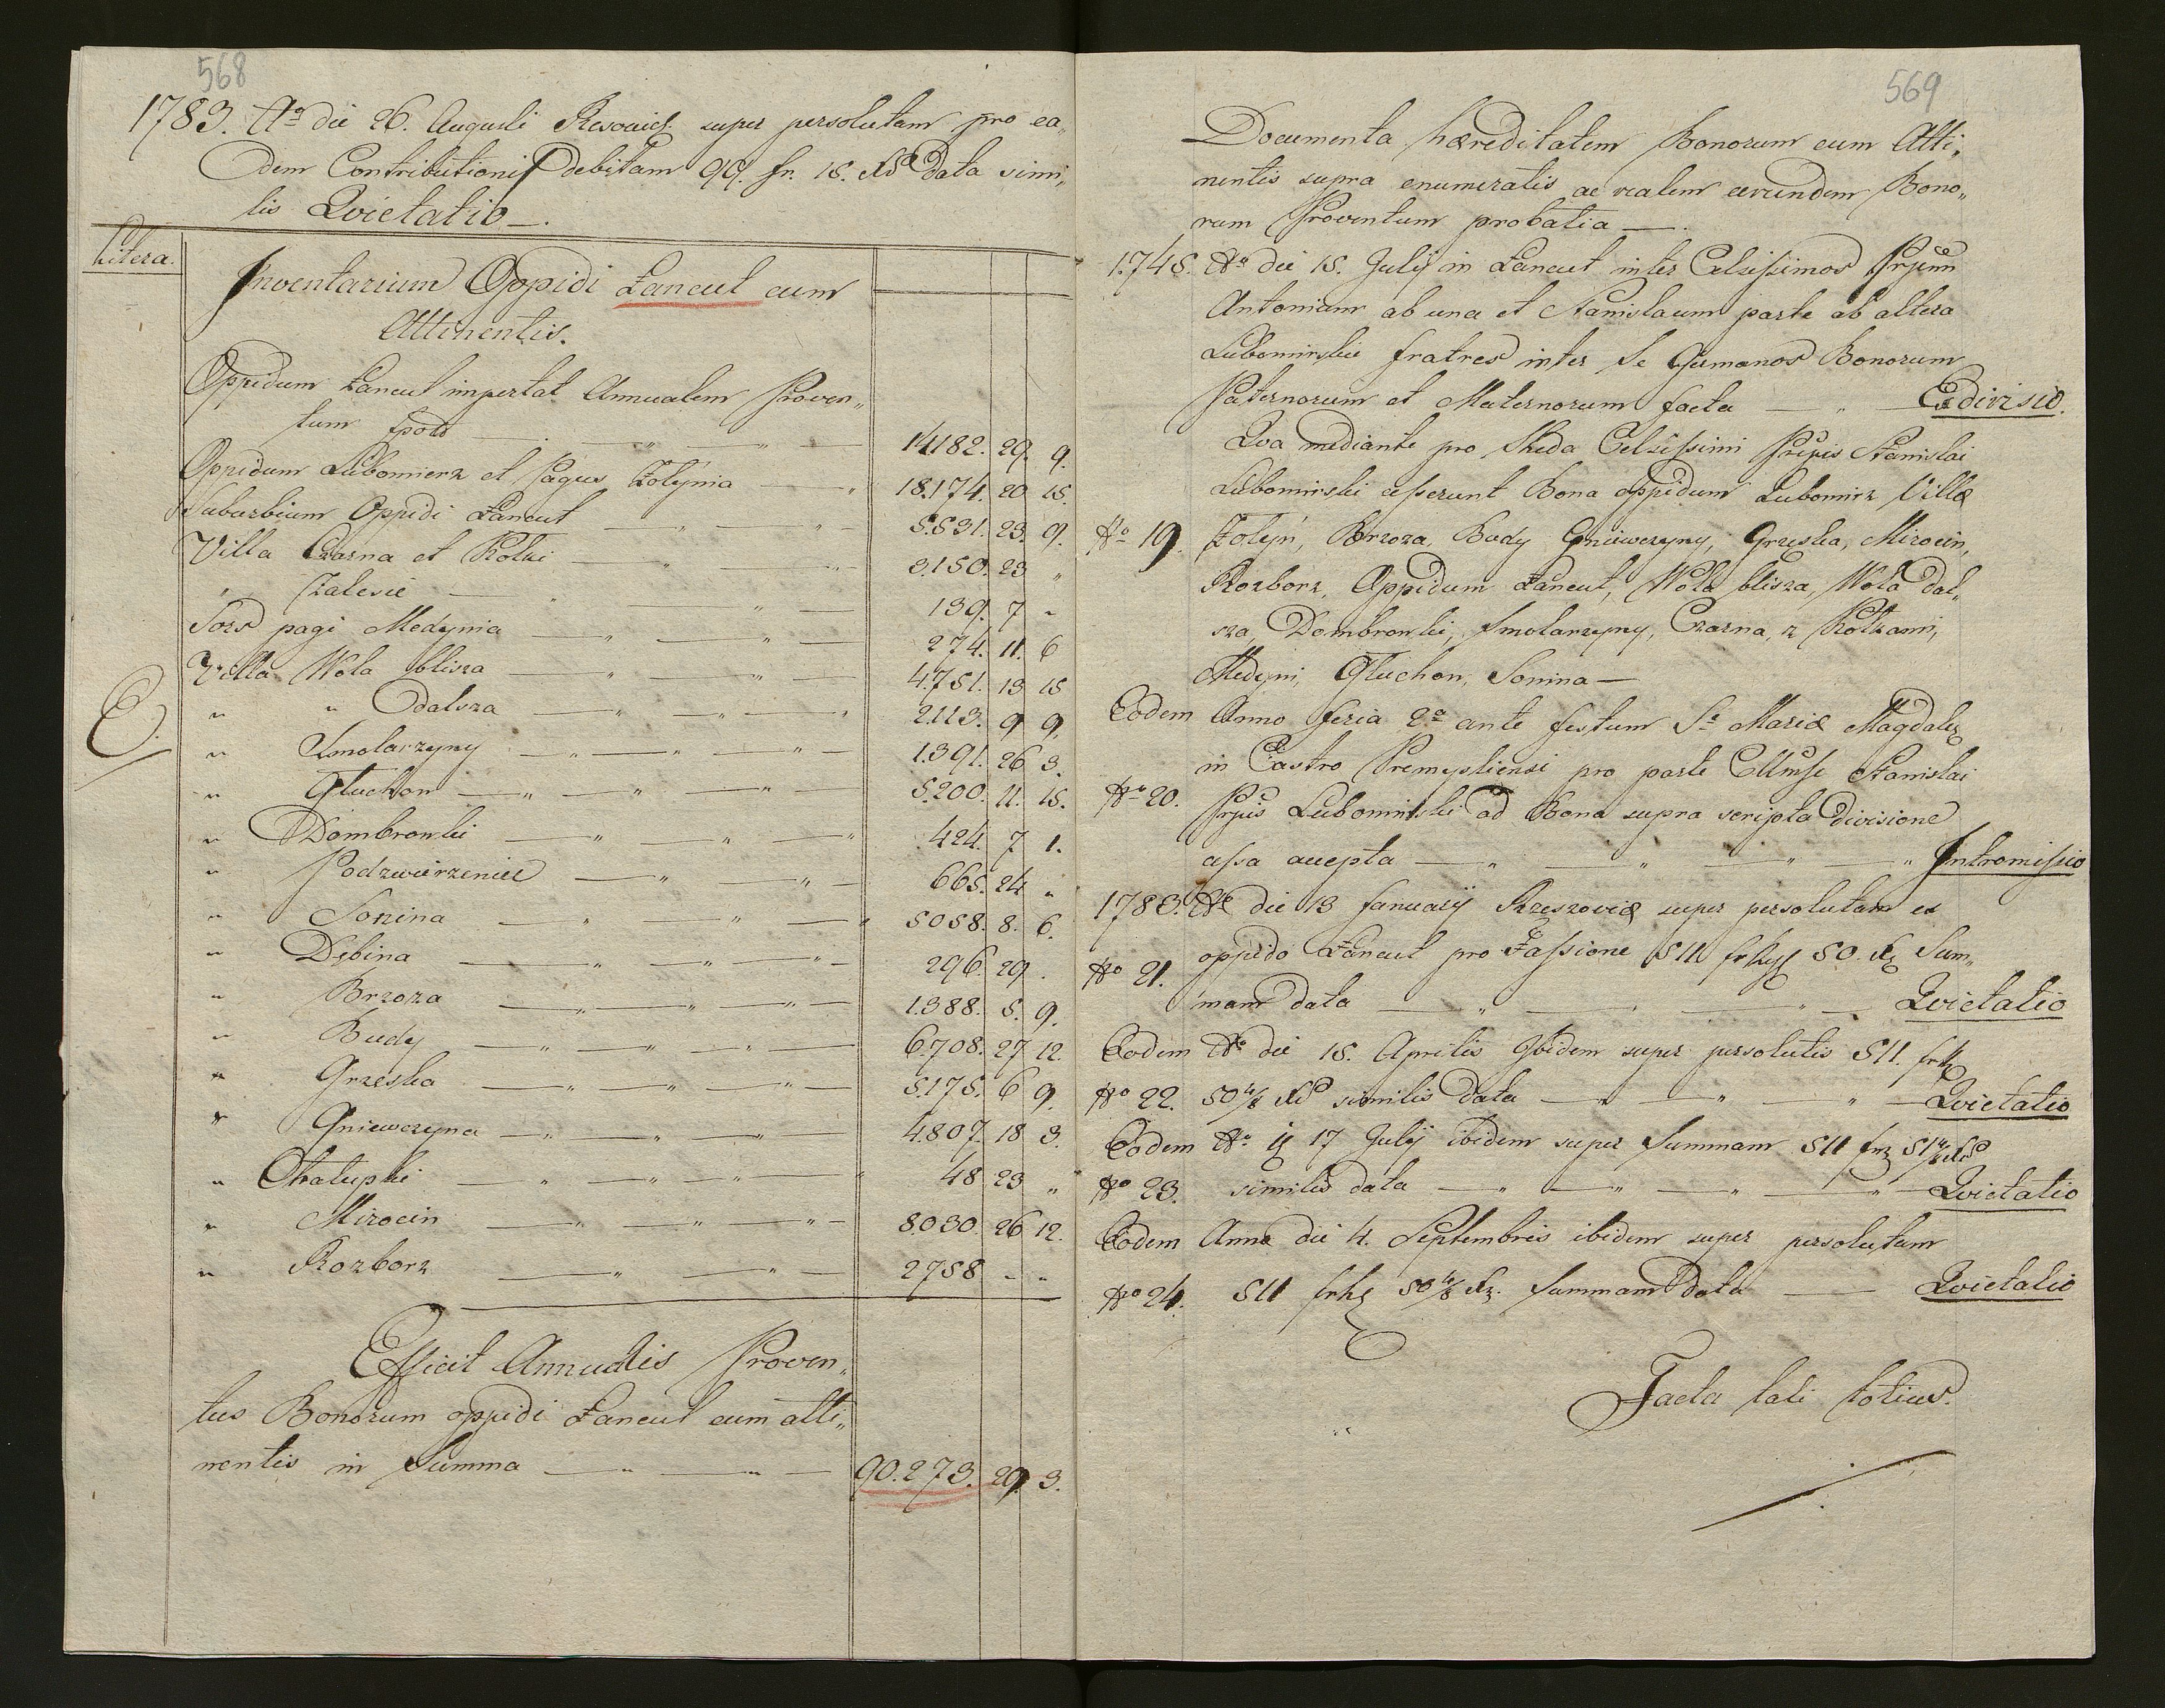 568
1783. Aō die 26. Augusti Resoviæ super persolutam pro ea„
dem Contributionis debitam 99. fr. 15. Xr data simi„
lis Qvietatio —.
Litera.
Inventarium Oppidi Łancut cum
Attinentis.
Oppidum Łancut importat Annualem Proven„
tum fpolo — 14182. 29. 9.
Oppidum Lubomierz et Pagus Żołynia — 18.174. 20 15
Suburbium Oppidi Łancut — 5.531. 23. 9.
Villa Czarna et Kołki — 3.150. 23 „
„ Zalesie — 139. 7 -
Sors pagi Medynia — 274. 11. 6
Villa Wola bliższa — 4.751. 13 15
E.
„ „ Dalsza — 2.113. 9 9.
„ Smolarzyny — 1.391. 26 3.
„ Głuchow — 5.200. 11. 15.
„ Dombrowki — 424. 7. 1.
„ Podzwierzeniec — 665. 24 „
„ Sonina — 5058. 8. 6.
„ Dębina — 296. 29 .
„ Brzoza — 1.388. 5. 9.
„ Budy — 6.708. 27 12.
„ Grzeska — 5.175. 6 9.
„ Gniewczyna — 4.807. 18 3.
„ Chałupki — 48 23 „
„ Mirocin — 8.030. 26 12.
„ Rozborz — 2758 - „
Efficit Annualis Proven„
tus Bonorum oppidi Łancut cum atti„
nentis in Summa — 90.273. 29. 3.
569
Documenta hæreditatem Bonorum cum Atti„
nentis supra enumeratis ac realem earundem Bono„
rum Proventum probatia —.
1745. Aō die 15. Julij in Łancut inter Celsissimos Prpem
Antonium ab una et Stanislaum parte ab altera
Lubomirskie fratres inter Se Germanos Bonorum
Paternorum et Maternorum facta — Exdivisio.
Qva mediante pro Sheda Celsissimi Prpis Stanislai
Lubomirski cesserunt Bona oppidum Lubomirz Villæ
No 19. Żołyń, Brzoza, Budy Gniewczyny, Grzęska, Mirocin,
Rozborz, Oppidum Łancut, Wola bliższa, Wola Dal„
sza, Dombrowki, Smolarzyny, Czarna, z Kołkami,
Medyni, Głuchow, Sonina —
Eodem Anno feria 2da ante festum Sæ Mariæ Magdalæ
in Castro Premysliensi pro parte Cellmse Stanislai
No 20. Prpis Lubomirski ad Bona supra scripta divisione
assa accepta — Intromissio
1783. Aō die 13 January Rzeszoviæ super persolutam ex
No 21. oppido Łancut pro Fassione 511 frhg 50. Xr Sum„
mam data — Qvietatio
Eodem Aō die 15. Aprilis Ibidem super persolutis 511. frh
No 22. 50 4/8 Xr similis data — Qvietatio
Eodem Aō 17 Julij ibidem super Summam 511 frh 51 4/8 Xr
No 23. similis data — Qvietatio
Eodem Anno die 4. Septembris ibidem super persolutam
No 24. 511 frhg 50 4/8 Xr. Summam data — Qvietatio
Facta lati totius.